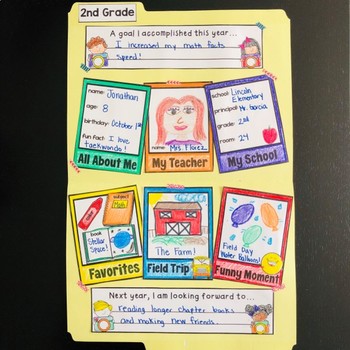 2nd Grade
A goal I accomplished this year...
I increased my math facts
speed!
name: Jonathan
age: 8
birthday: October 1st
fun fact: I love
taekwondo!
All About Me
name: Mrs. Florez
My Teacher
school: Lincoln
Elementary
principal: Mr. Garcia
grade: 2nd
room: 24
My School
subject
Math
book
Stellar
Space!
Favorites
The Farm!
Field Trip
Field Day
Water Balloons!
Funny Moment!
Next year, I am looking forward to...
reading longer chapter books
and making new friends.